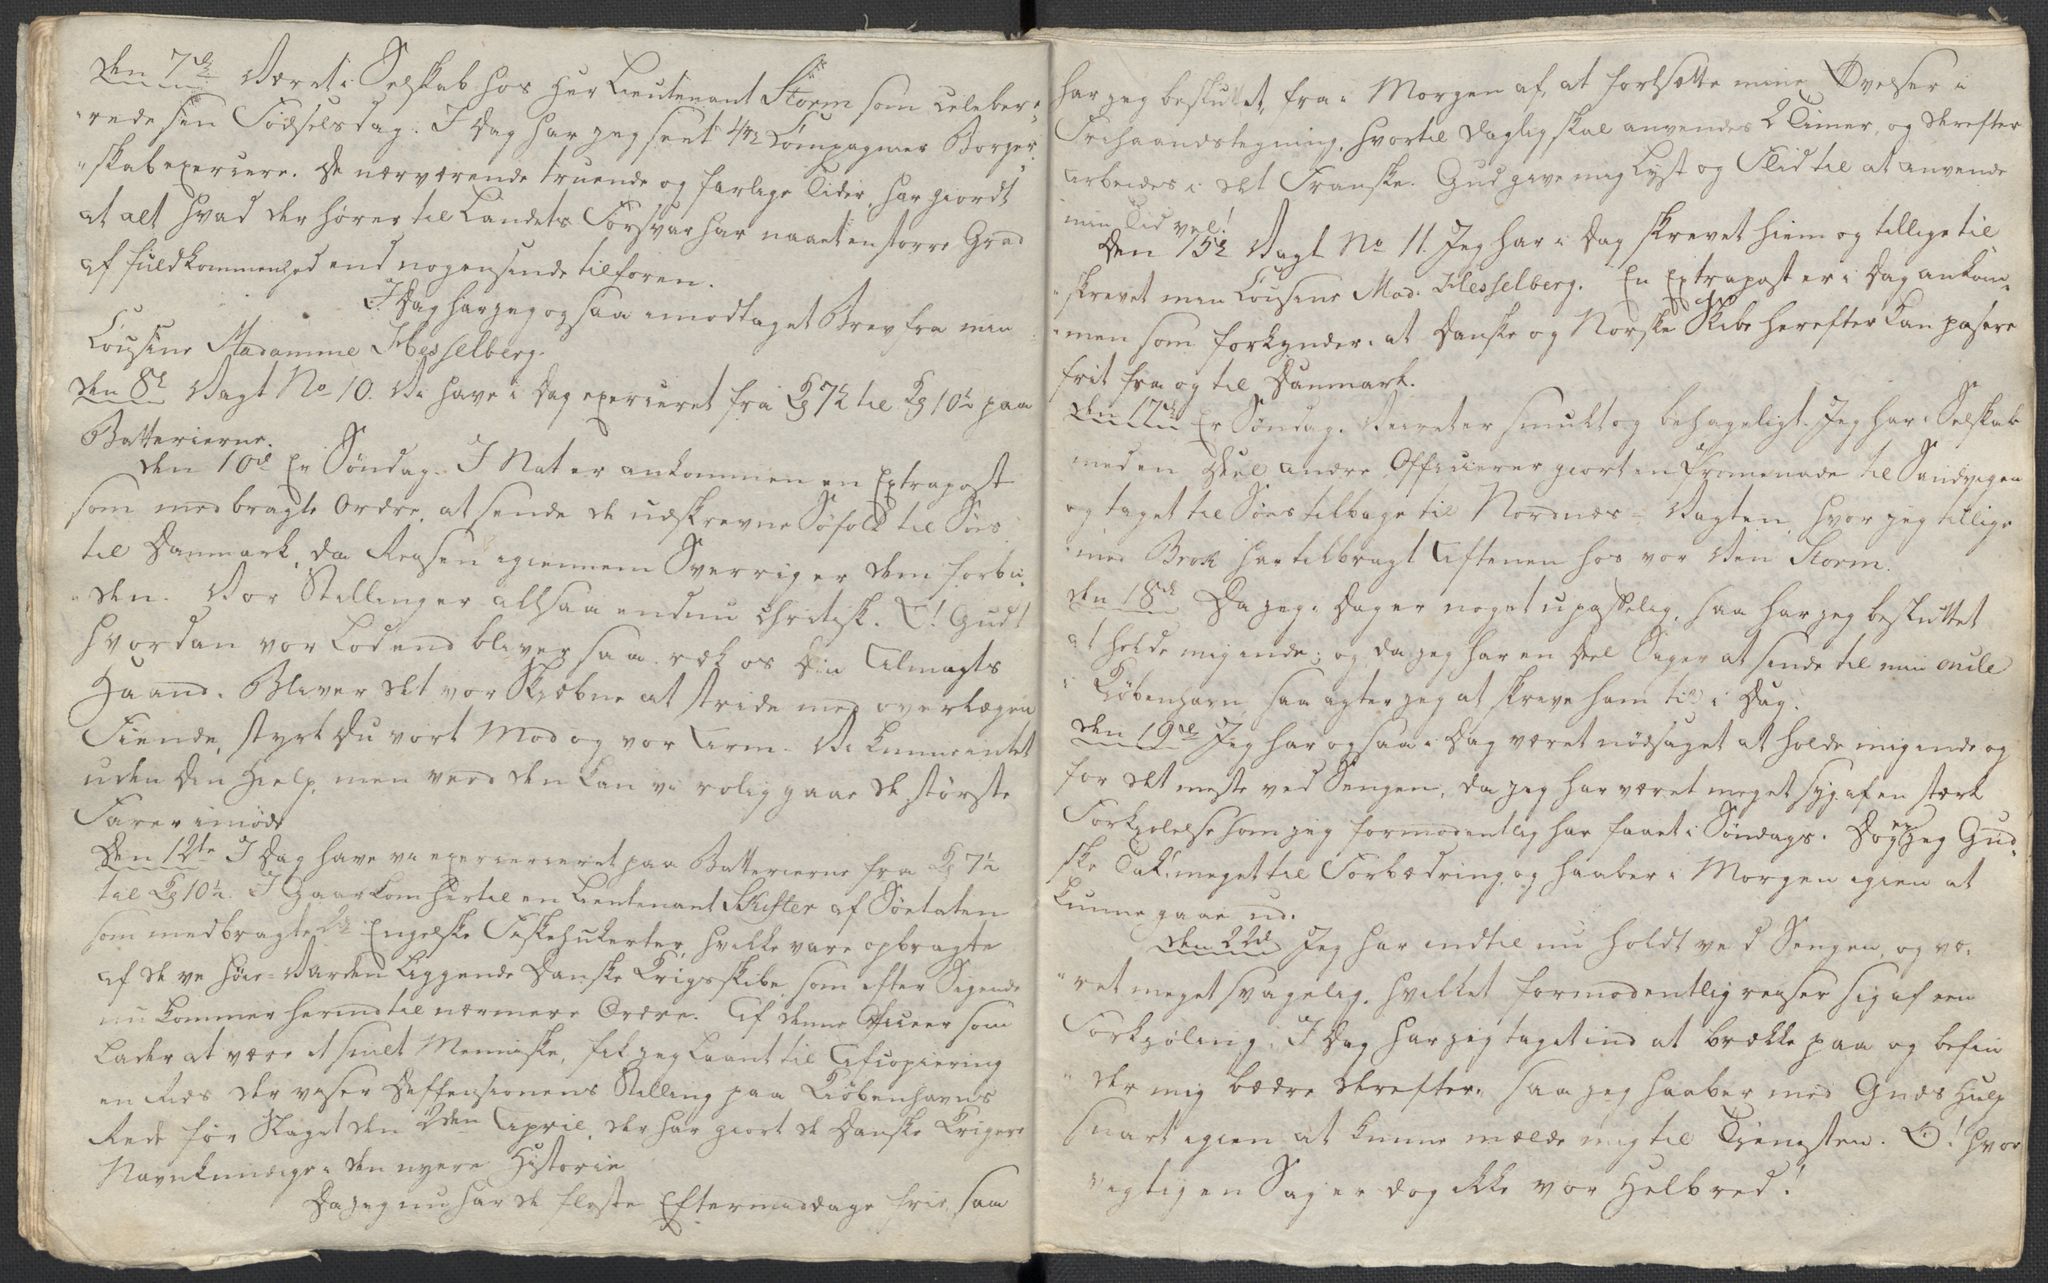 Den 7de Været i Selskab hos Herr Lieutenant Storm som celebre-
rede sin Fødselsdag. I Dag har jeg seet 4re Compagnier Borger-
skab exercere. De nærværende truende og farlige Tider, har giordt
at alt hvad der hører til Landets Forsvar har naaet en større Grad
af fuldkommenhed end nogensinde tilforen.
I Dag har jeg og saa imodtaget Brev fra min
Cousine Madamme Hesselberg.
den 8de Vagt No 10. Vi have i Dag exerceret fra Kl 7½ til Kl 10½ paa
Batterierne.
Den 10de Er Søndag. I Nat er ankommen en Extrapost
som medbragte Ordre, at sende de udskrevne Søfolk til Søes
til Danmark, da Reisen igiennem Sverrig er dem forbu-
den. Vor Stilling er altsaa endnu Chritisk. O! Gud!
hvordan vor Lod end bliver saa ræk os Din Almagts
Haand. Bliver det vor Skiæbne at stride med overlegen
Fiende, styrk Du vort Mod og vor Arm. Vi kunne intet
uden Din Hielp, men ved den kan vi rolig gaae de største
Farer imøde
Den 12te I Dag have vi exerceret paa Batterierne fra Kl 7½
til Kl 10½. I Gaar kom hertil en Lieutenant Skifter af Søetaten
som medbragte 2de Engelske Fiskehukerter, hvilke vare opbragte
af de ve Høie-Varden liggende Danske Krigsskibe, som efter Sigende
nu kommer herind til nærmere Ordre. Af denne Officeer som
lader at være et smukt Menniske, fik jeg laant til Afcopiering
en Rids der viser Deffensionens Stilling paa Kiøbenhavns
Rede før Slaget den 2den April, der har giort de Danske Krigere
Navnkundige i den nyere Historie
Da jeg nu har de fleste Eftermiddage frie, saa
har jeg besluttet, fra i Morgen af, at fortsætte mine Øvelser i
Frihaandstegning, hvortil daglig skal anvendes 2 Timer, og derefter
arbeides i det Franske. Gud give mig Lyst og Flid til at anvende
min Tid vel!
Den 15de Vagt No 11. Jeg har i Dag skrevet hiem og tillige til
skrevet min Cousine Mad. Hesselberg. En Extrapost er i Dag ankom-
men som forkynder, at Danske og Norske Skibe herefter kan pasere
frit fra og til Danmark.
Den 17de Er Søndag. Veiret er smukt og behageligt. Jeg har i Selskab
med en Deel andre Officierer giort en Promenade til Sandvigen
og taget til Søes tilbage til Nordnæs-Vagten, hvor jeg tillige
med Brok har tilbragt Aftenen hos vor Ven Storm.
den 18de Da jeg i Dag er noget upasselig, saa har jeg besluttet
at holde mig inde; og da jeg har en Deel Sager at sende til min Oncle
i Kiøbenhavn, saa agter jeg at skrive ham til i Dag.
den 19de Jeg har ogsaa i Dag været nødsaget at holde mig inde og
for det meste ved Sengen, da jeg har været meget syg af en stærk
Forkiølelse som jeg formodentlig har faaet i Søndags. Dog er jeg Gud
ske Tak! meget til Forbedring, og haaber i Morgen igien at
kunne gaae ud.
Den 22de Jeg har indtil nu holdt ved Sengen, og væ-
ret meget svagelig, hvilket formodentlig reiser sig af een
Forkiøling. I Dag har jeg taget ind at brække paa og befin
der mig bedre derefter, saa jeg haaber med Guds Hielp
snart igien at kunne melde mig til Tienesten. O! hvor
vigtig en Sag er dog ikke vor Helbred!